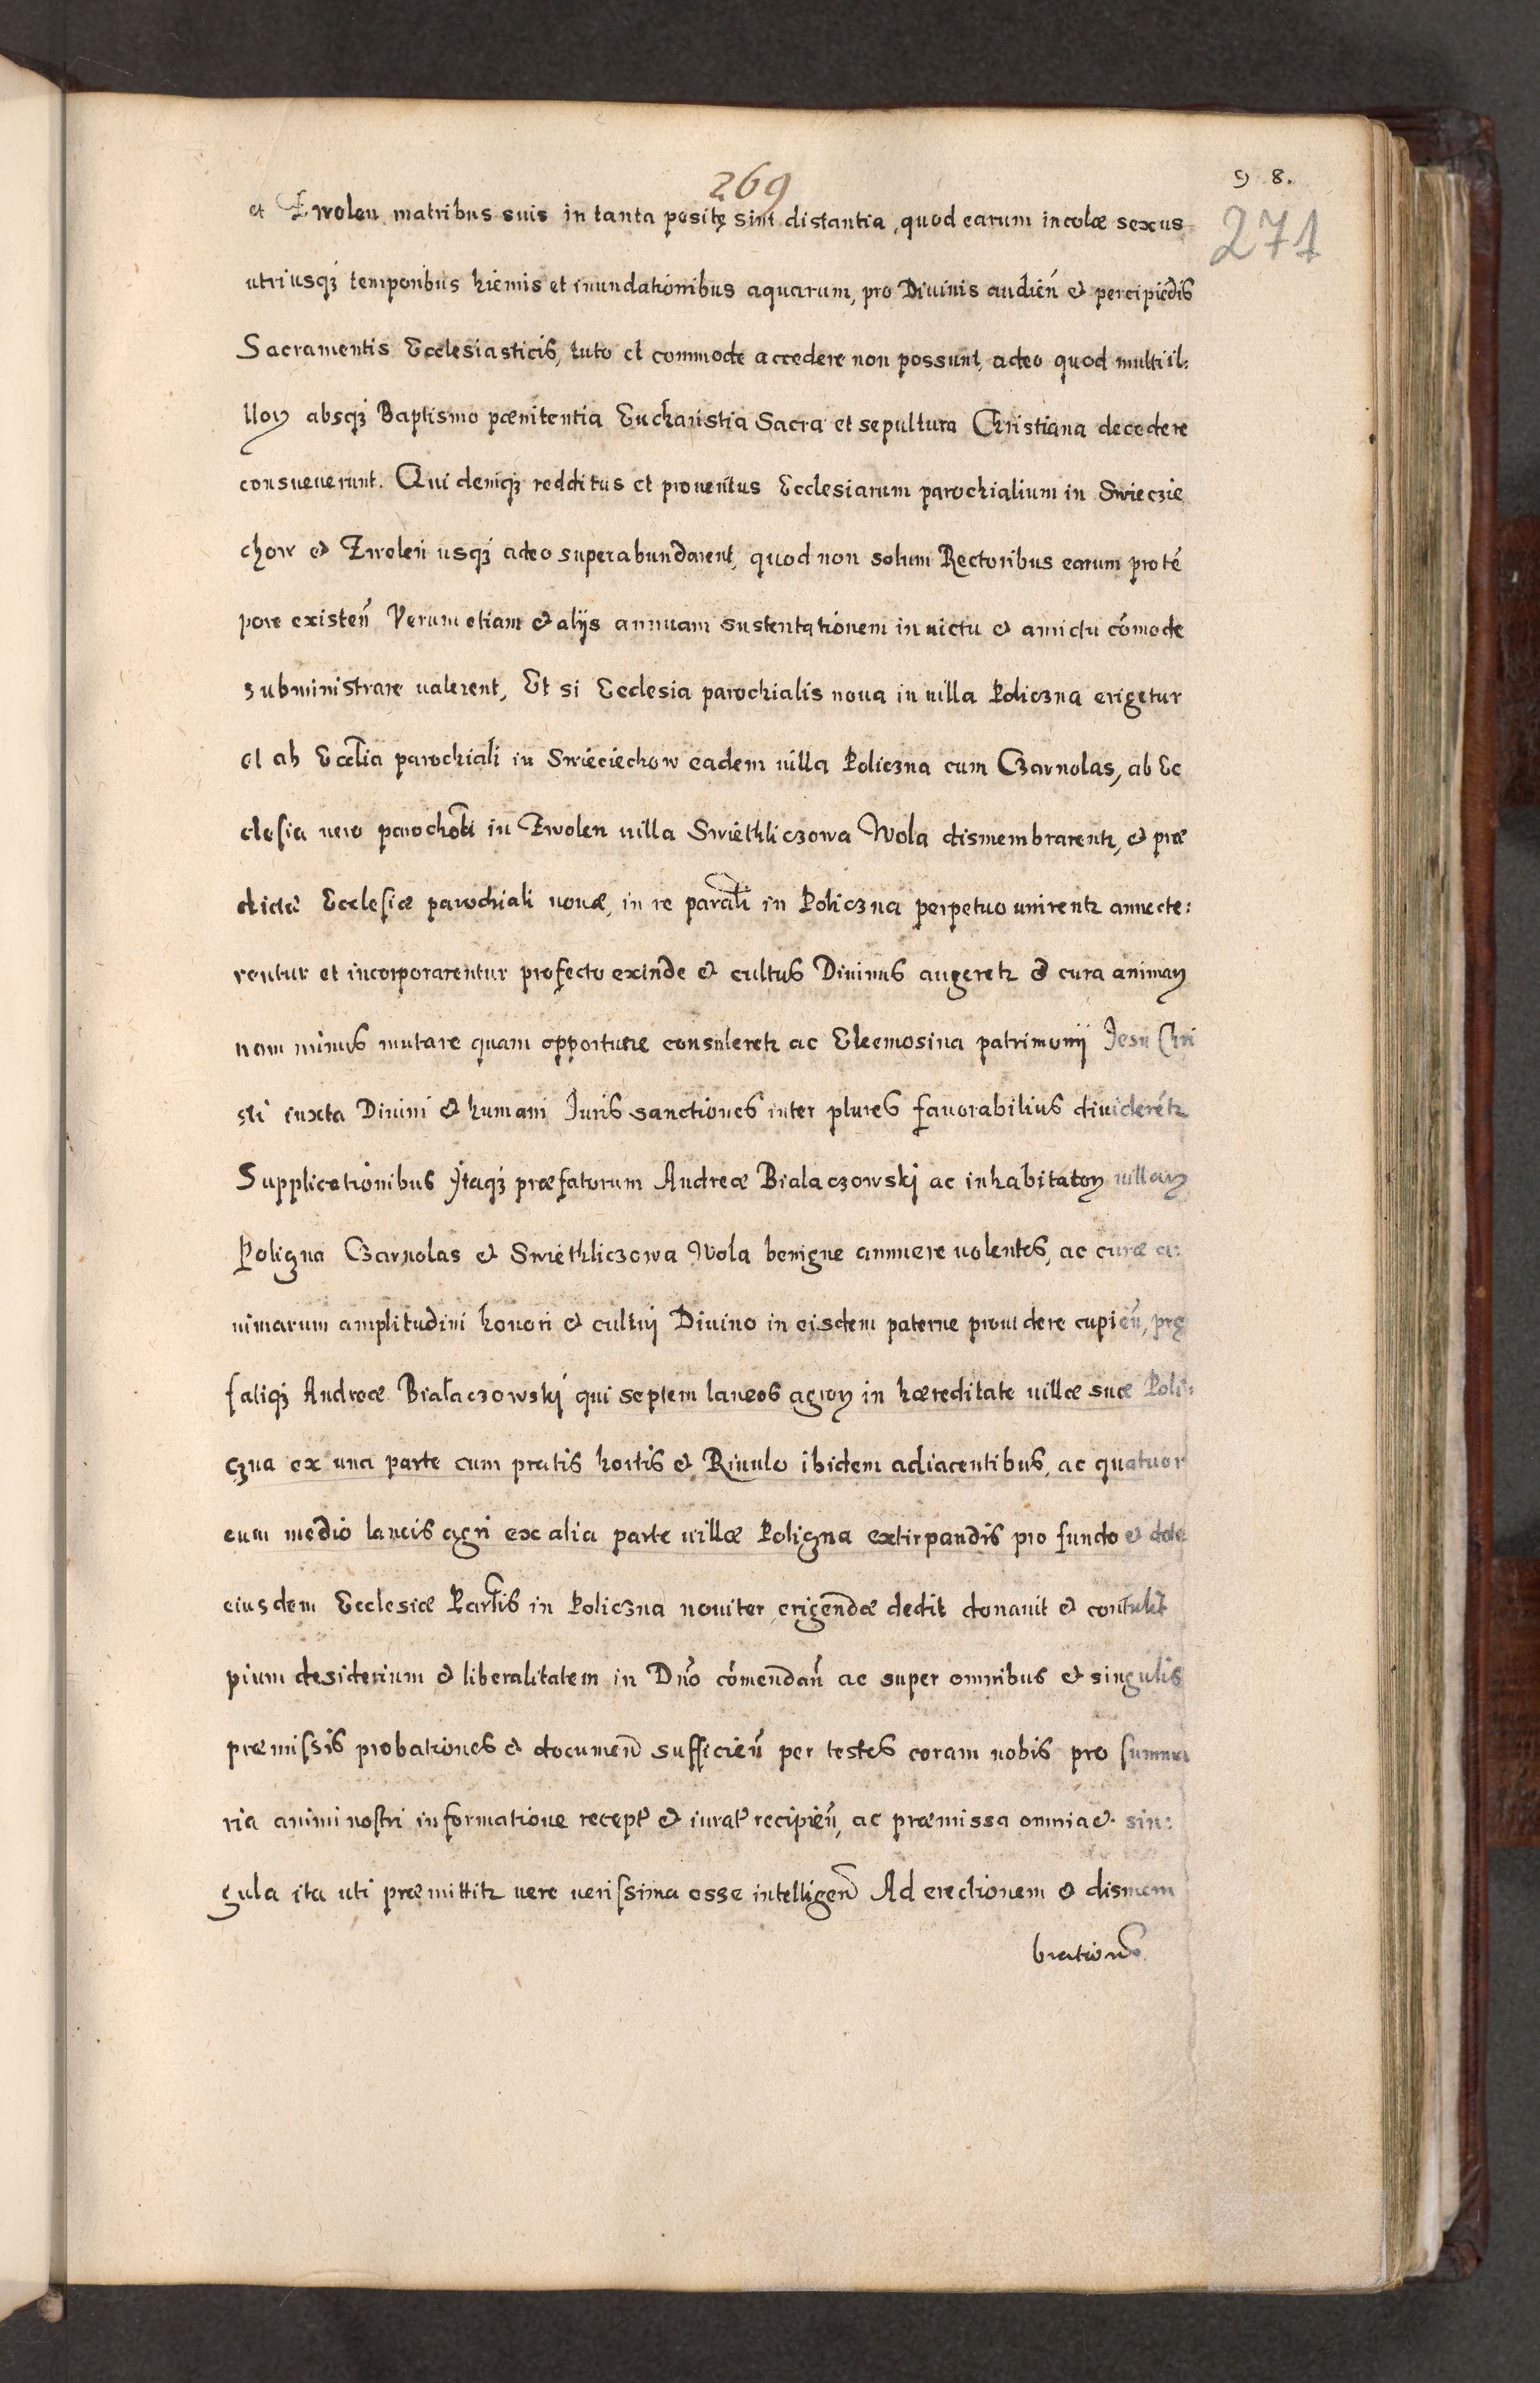 269
9 8.
271
et Zwolen matribus suis in tanta positę sint distantia, quod earum incolæ sexus
utriusqȝ temporibus hiemis et inundationibus aquarum, pro Diuinis audień et percipiēdis
Sacramentis Ecclesiasticis, tuto et commode accedere non possunt, adeo quod multi il:
lloꝝ absqȝ Baptismo pœnitentia Eucharistia Sacra et sepultura Christiana decedere
consueuerunt. Qui deniqȝ redditus et prouentus Ecclesiarum parochialium in Swieczie
chow et Zwoleń usqȝ adeo superabundarent, quod non solum Rectoribus earum pro té
pore existeń Verum etiam et alijs annuam sustentationem in uictu et amictu cómode
subministrare ualerent, Et si Ecclesia parochialis noua in uilla Policzna erigetur
et ab Eccl̃ia parochiali in Swieciechow eadem uilla Policzna cum Czarnolas, ab Ec
clesia uero parochali in Zwolen uilla Swiethliczowa Wola dismembrarentꝛ, et præ
dictæ Ecclesiæ parochiali nouæ, in re parãli in Policzna perpetuo unirentꝛ annecte:
rentur et incorporarentur profecto exinde et cultus Diuinus augeretꝛ et cura animaꝝ
nom minus mutare quam opportune consuleretꝛ ac Eleemosina patrimonij Jesu Chri
sti iuxta Diuini et humani Juris sanctiones inter plures fauorabilius diuiderétꝛ
Supplicationibus Jtaqȝ præfatorum Andreæ Bialaczowskj ac inhabitatoꝝ uillaꝝ
Poligna Czarnolas et Swiethliczowa Wola benigne annuere uolentes, ac curæ a:
nimarum amplitudini honori et cultuj Diuino in eisdem paterne prouidere cupień, prę
fatiqȝ Andreæ Białaczowskj qui septem laneos agroꝝ in hæreditate uillæ suæ Poli:
czna ex una parte cum pratis hortis et Riuulo ibidem adiacentibus, ac quatuor
cum medio laneis agri ex alia parte uillæ Poligna extirpandis pro fundo et dote
eiusdem Ecclesiæ Parl̃is in Policzna nouiter erigendæ dedit donauit et contulit
pium desiderium et liberalitatem in Dńo cómendań ac super omnibus et singulis
præmissis probationes et documeñ sufficień per testes coram nobis pro summa
ria animi nostri informatione recept̃ et iurat̃ recipień, ac præmissa omnia et sin:
gula ita uti præmittitꝛ uere uerissima esse intelligeñ Ad erectionem et dismem
brationẽ